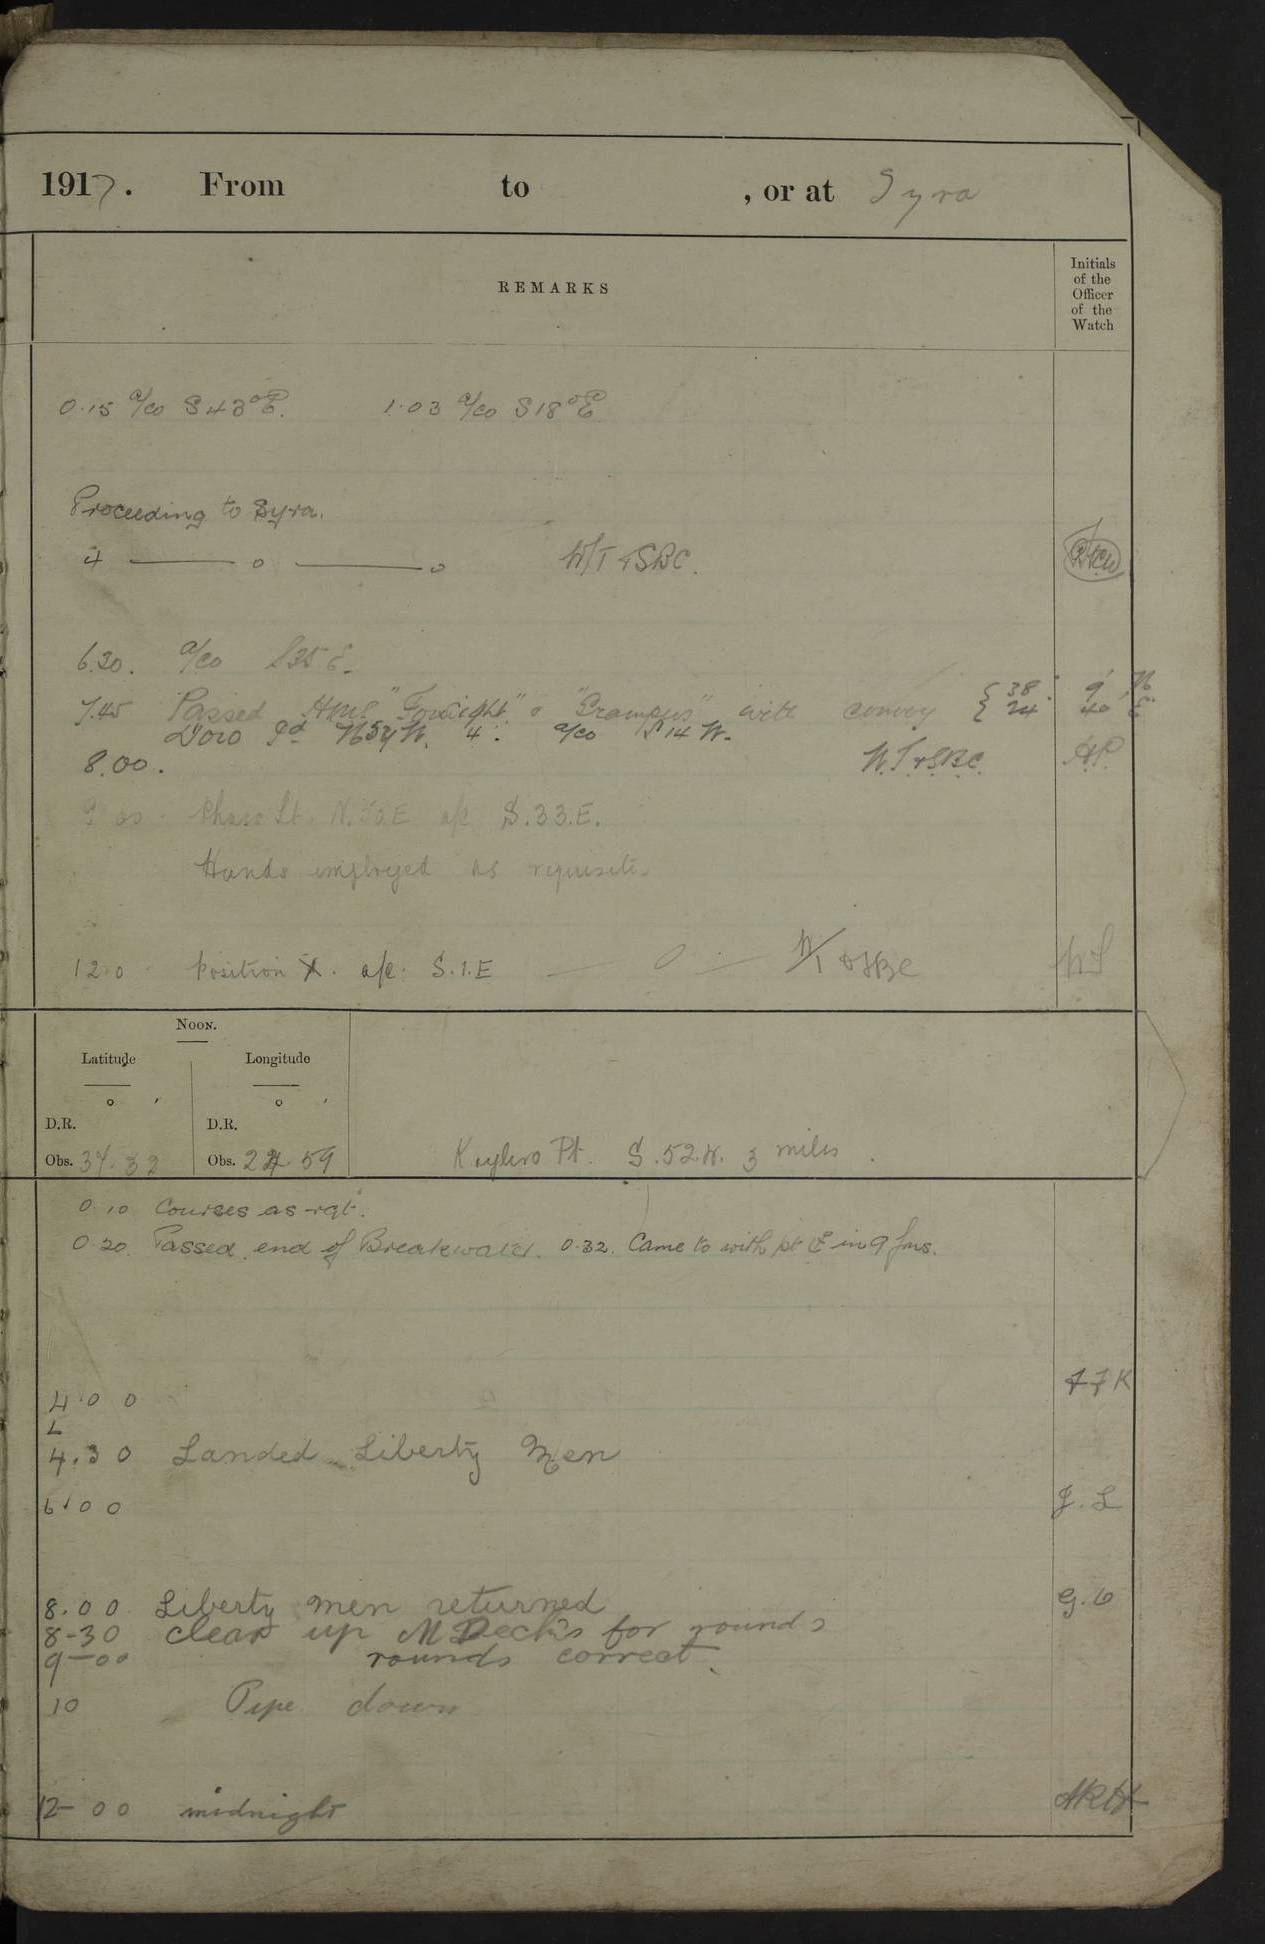 1917. From to , or at Syra
REMARKS
Initials
of the
Officer
of the
Watch
0.15 a/co S43°E. 1.03 a/co S18°E
Proceeding to Syra.
4 —— o —— o W/T & SBC.
6.20. a/co S35E.
7.45 Passed HMS "Foresight" & "Grampus" with convoy { 38° 9' N
{ 24 40 E
Doro Id N54W. 4'. a/co S14W.
8.00. W.T. & S.B.C. A.P.
9 00 Lt. N.50.E a/c S.33.E.
Hands employed as requisite.
12.0 Position X. a/c. S.1.E — o — W/T & SBC WS
NOON.
Latitude Longitude
° ' ° '
D.R. D.R.
Obs. 37.32 Obs. 24 59 Pt. S.52.W. 3 miles.
0.10 Courses as rqt.
0.20. Passed end of Breakwater. 0.32. Came to with pt in 9 fms.
4.00 FFK
4.30 Landed Liberty Men
6.00 J.L
8.00 Liberty men returned G.O
8-30 clear up M Decks for rounds
9-00 rounds correct.
10 Pipe down
12-00 midnight